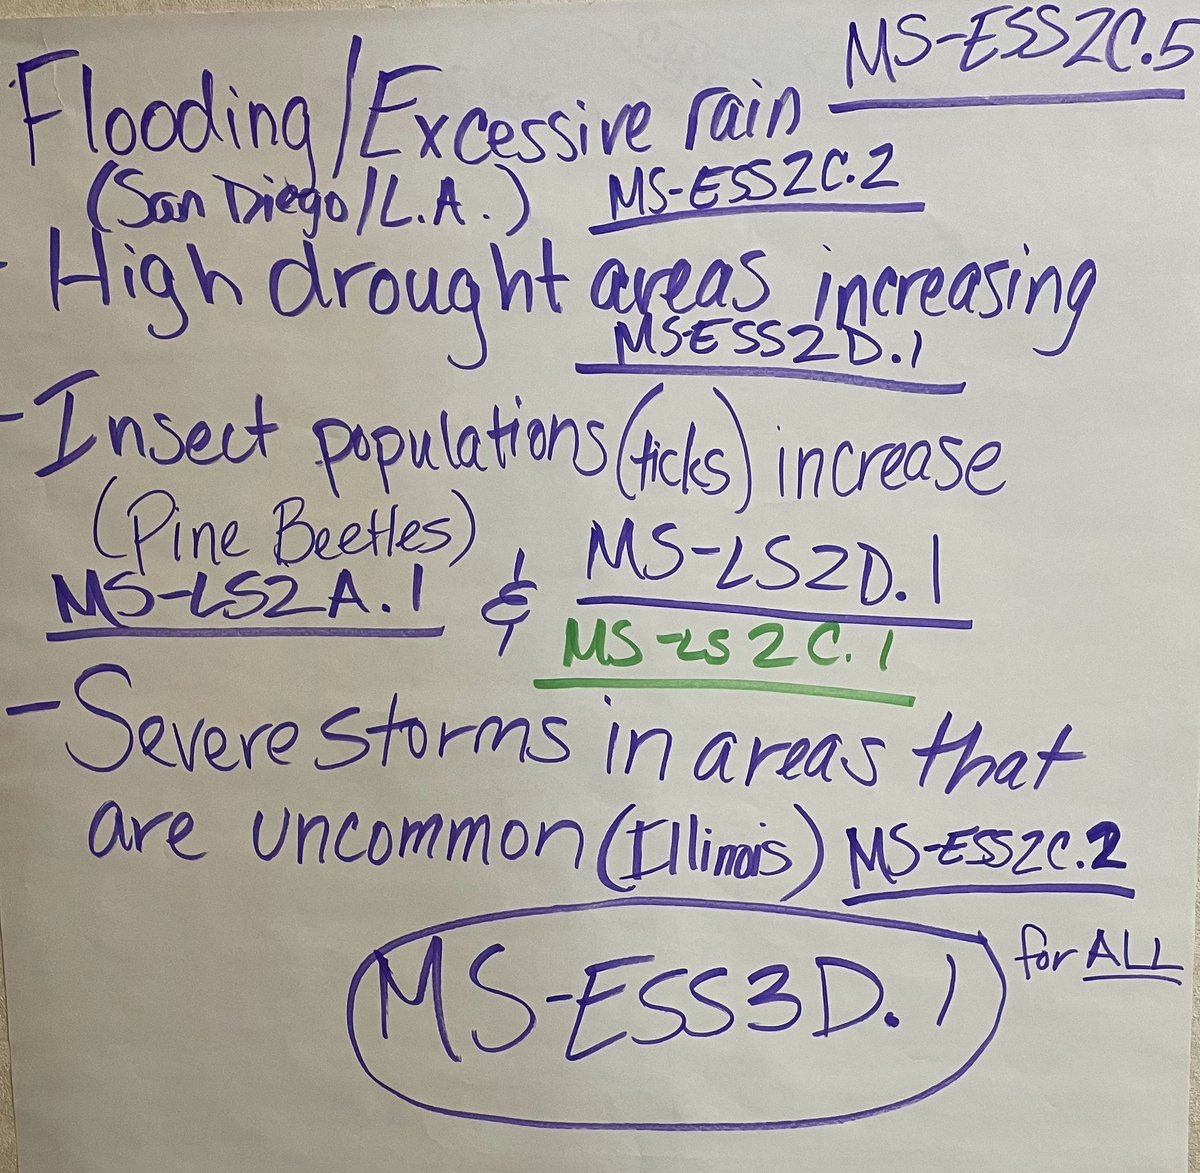 MS-ESS2C.5
Flooding/Excessive rain
(San Diego/L.A.) MS-ESS2C.2
- High drought areas increasing
MS-ESS2D.1
- Insect populations (ticks) increase
(Pine Beetles)
MS-LS2A.1 & MS-LS2D.1
MS-LS2C.1
- Severe storms in areas that
are uncommon (Illinois) MS-ESS2C.2
MS-ESS3D.1 for ALL